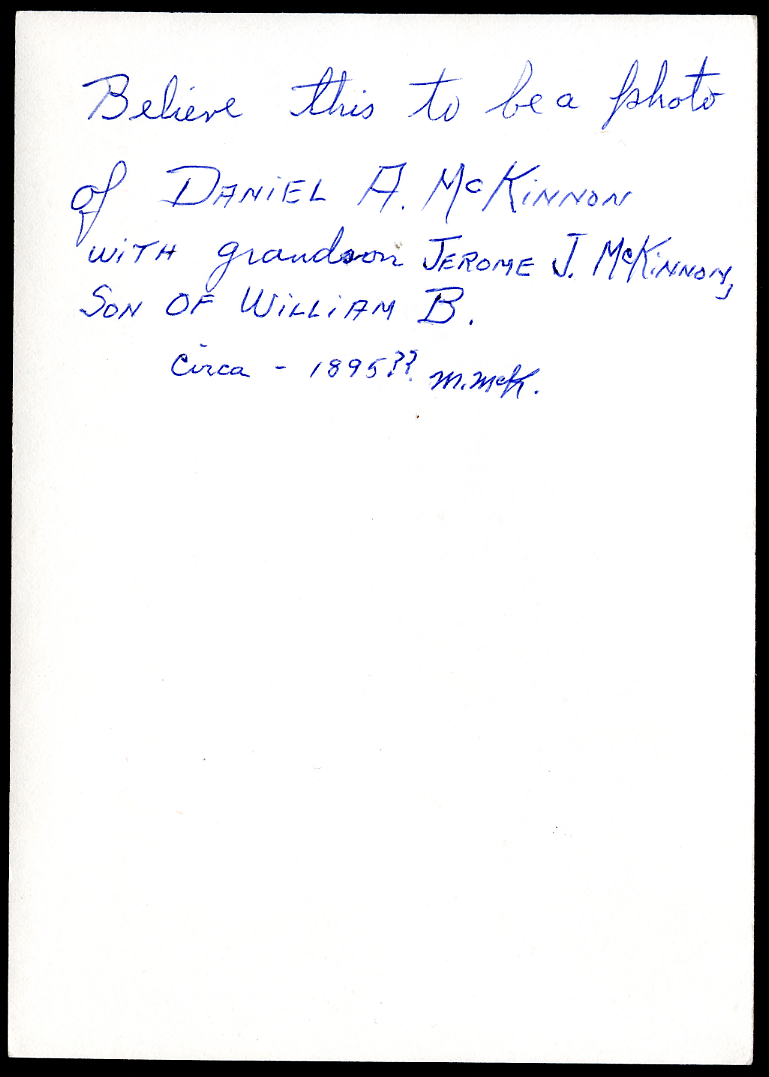 Believe this to be a photo
of DANiEL A. McKiNNON
WiTH grandson JEROME J. McKiNNON,
SON OF WiLLiAM B.
Circa - 1895?? M.McK.